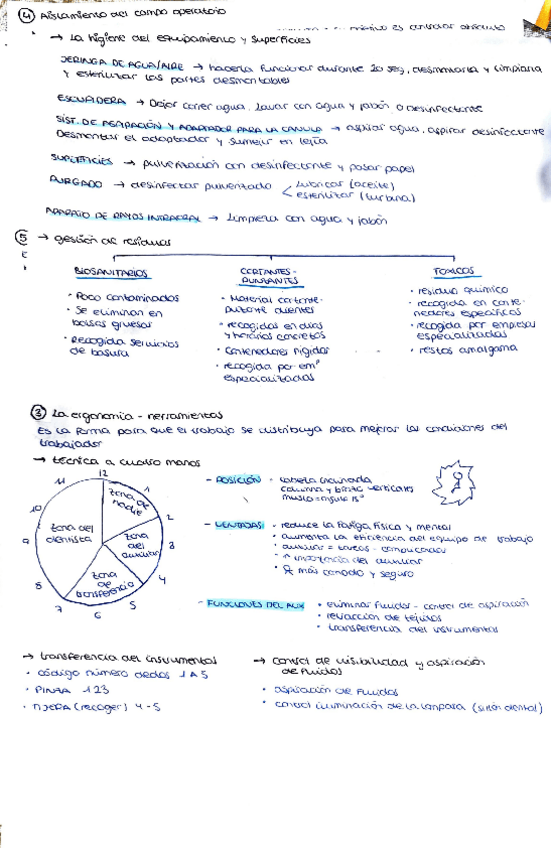 ④ Aislamiento del campo operatorio
→ La higiene del equipamiento y superficies
JERINGA DE AGUA/AIRE → hacerla funcionar durante 20 seg, desmontarla y limpiarla
y esterilizar las partes desmontables
ESCUPIDERA → Dejar correr agua. Lavar con agua y jabón o desinfectante
SIST. DE ASPIRACIÓN Y ADAPTADOR PARA LA CÁNULA → aspirar agua, aspirar desinfectante
Desmontar el adaptador y sumerjir en lejía
SUPERFICIES → pulverización con desinfectante y pasar papel
PURGADO → desinfectar pulverizado < lubricar (aceite)
esterilizar (turbina)
APARATO DE RAYOS INTRAORAL → Limpieza con agua y jabón
⑤ → gestión de residuos
BIOSANITARIOS
• Poco contaminados
• Se eliminan en
bolsas gruesas
• Recogida servicios
de basura
CORTANTES-
PUNZANTES
• Material cortante-
punzante
• recogidos en días
y horarios concretos
• Contenedores rígidos
• recogida por emp
especializadas
TOXICOS
• residuo químico
• recogida en conte-
nedores específicos
• recogida por empresas
especializadas
• restos amalgama
③ La ergonomía - herramientas
Es la forma para que el trabajo se distribuya para mejorar las condiciones del
trabajador
→ técnica a cuatro manos
12
1
2
3
4
5
6
7
8
9
10
11
zona de
nadie
zona
del
auxiliar
zona
de
transferencia
zona del
dentista
- POSICIÓN • cabeza inclinada
columna y verticales
- VENTAJAS • reduce la fatiga física y mental
• aumenta la eficiencia del equipo de trabajo
• auxiliar =
• importancia del auxiliar
• más cómodo y seguro
- FUNCIONES DEL AUX • eliminar fluidos - control de aspiración
• retracción de tejidos
• transferencia del instrumentos
→ transferencia del instrumentos
• código número dedos 1 A 5
• PINZA 1 2 3
• TIJERA (recoger) 4-5
→ control de visibilidad y aspiración
de fluidos
• aspiración de fluidos
• control iluminación de la lámpara (sillón dental)